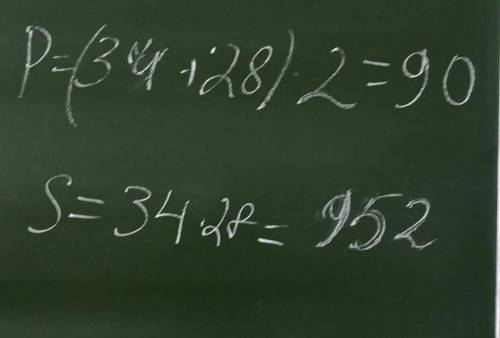 P=(34+28)·2=90
S=34·28=952